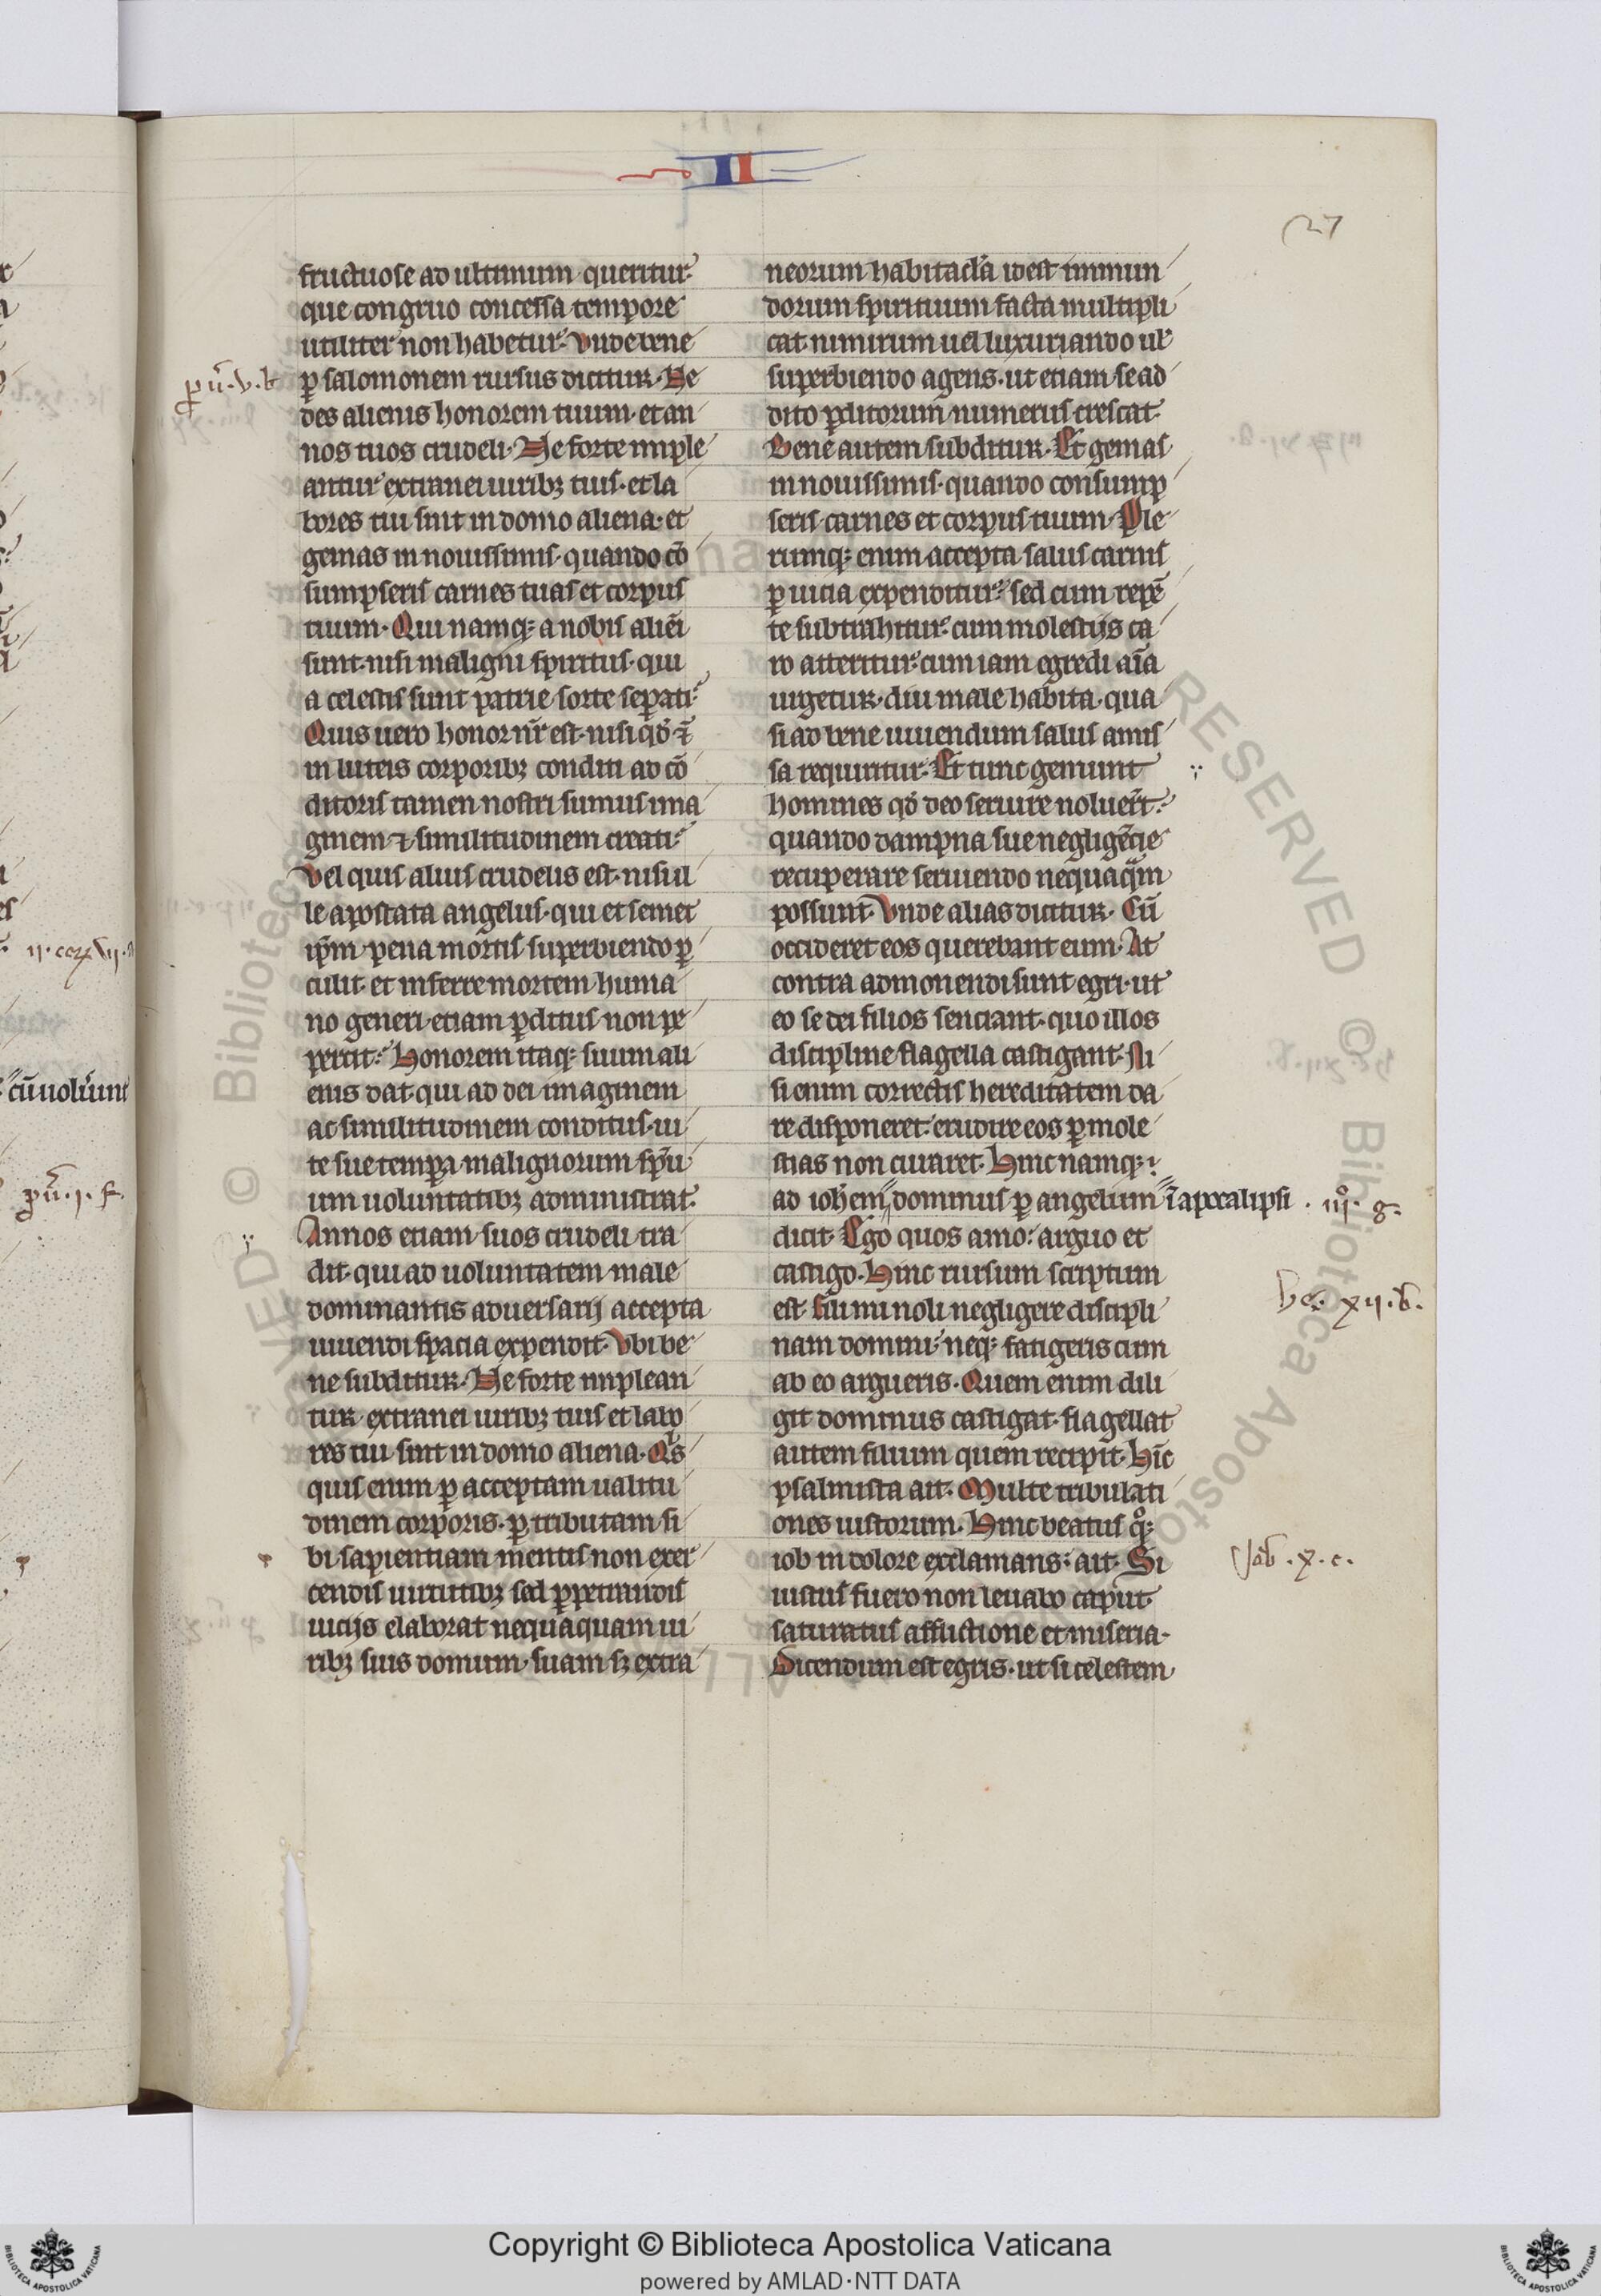 II
27
fructuose ad ultimum queritur.
que congruo concessa tempore
utiliter non habetur. Vnde bene
ꝑ salomonem rursus dicitur. Ne
des alienis honorem tuum. et an
nos tuos crudeli. Ne forte imple
antur extranei uiribꝫ tuis. et la
bores tui sint in domo aliena. et
gemas in nouissimis. quando cō
sumpseris carnes tuas et corpus
tuum. Qui namqꝫ a nobis aliēi
sunt. nisi maligni spiritus. qui
a celestis sunt patrie sorte seꝑati.
Quis uero honor nr̄ est. nisi qđ ⁊
in luteis corporibꝫ conditi ad cō
ditoris tamen nostri sumus ima
ginem ⁊ similitudinem creati.
Vel quis alius crudelis est. nisi il
le apostata angelus. qui et semet
ip̄m pena mortis superbiendo ꝑ
culit. et inferre mortem huma
no generi etiam ꝑditus non pe
percit. Honorem itaqꝫ suum ali
enis dat. qui ad dei imaginem
ac similitudinem conditus. ui
te sue tempora malignorum sp̄u
um uoluntatibꝫ administrat.
Annos etiam suos crudeli tra
dit. qui ad uoluntatem male
dominantis aduersarij accepta
uiuendi spacia expendit. Vbi be
ne subditur. Ne forte implean
tur extranei uiribꝫ tuis et labo
res tui sint in domo aliena. Qͥs
quis enim ꝑ acceptam ualitu
dinem corporis. ꝑ tributam si
bi sapientiam mentis non exer
cendis uirtutibꝫ sed ꝑpetrandis
uicijs elaborat nequaquam ui
ribꝫ suis domum suam sꝫ extra
neorum habitacl̄a idest immun
dorum spirituum facta multipli
cat. nimirum uel luxuriando ul̄
superbiendo agens. ut etiam se ad
dito ꝑditorum numerus crescat.
Bene autem subditur. Et gemas
in nouissimis. quando consump
seris carnes et corpus tuum. Ple
rumqꝫ enim accepta salus carnis
ꝑ uicia expenditur. sed cum repē
te subtrahitur. cum molestijs ca
ro atteritur. cum iam egredi aīa
urgetur. diu male habita. qua
si ad bene uiuendum salus amis
sa requiritur. Et tunc gemunt
homines qđ deo seruire noluer̄t.
quando dampna sue negligēcie
recuperare seruiendo nequaqᷓm
possunt. Vnde alias dicitur. Cū
occideret eos querebant eum. At
contra admonendi sunt egri. ut
eo se dei filios senciant. quo illos
discipline flagella castigant. Ni
si enim correctis hereditatem da
re disponeret. erudire eos ꝑ mole
stias non curaret. Hinc namqꝫ
ad ioh̄em dominus ꝑ angelum ī apocalipsi . iijº. g.
dicit. Ego quos amo. arguo et
castigo. Hinc rursum scriptum
est. Fili mi noli negligere discipli
nam domini. neqꝫ fatigeris cum
ab eo argueris. Quem enim dili
git dominus castigat. flagellat
autem filium quem recipit. Hīc
psalmista ait. Multe tribulati
ones iustorum. Hinc beatus qͦꝫ
iob in dolore exclamans. ait. Si
iustus fuero non leuabo caput
saturatus afflictione et miseria.
Dicendum est egris. ut si celestem
ꝑū. v. b
he. xij. b.
Iob. x. c.
cū uolūnt
ꝑū. j. f.